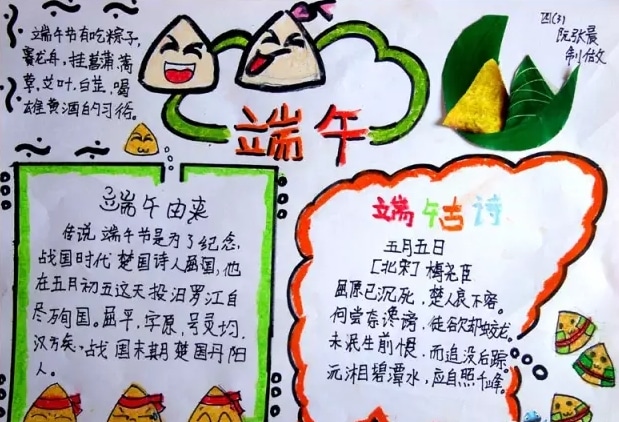 端午节有吃粽子,
赛龙舟,挂菖蒲蒿
草,艾叶,白芷,喝
雄黄酒的习俗。
四(3)
阮张晨
制作
端午
端午由来
传说端午节是为了纪念,
战国时代楚国诗人屈国,他
在五月初五这天投汨罗江自
尽殉国。屈平,字原,号灵均,
汉方矣,战国末期楚国丹阳
人。
端午古诗
五月五日
[北宋]梅尧臣
屈原已沉死,楚人哀不容。
何尝奈谗谤,徒欲却蛟龙。
未泯生前恨,而追没后踪。
沅湘碧潭水,应自照千峰。